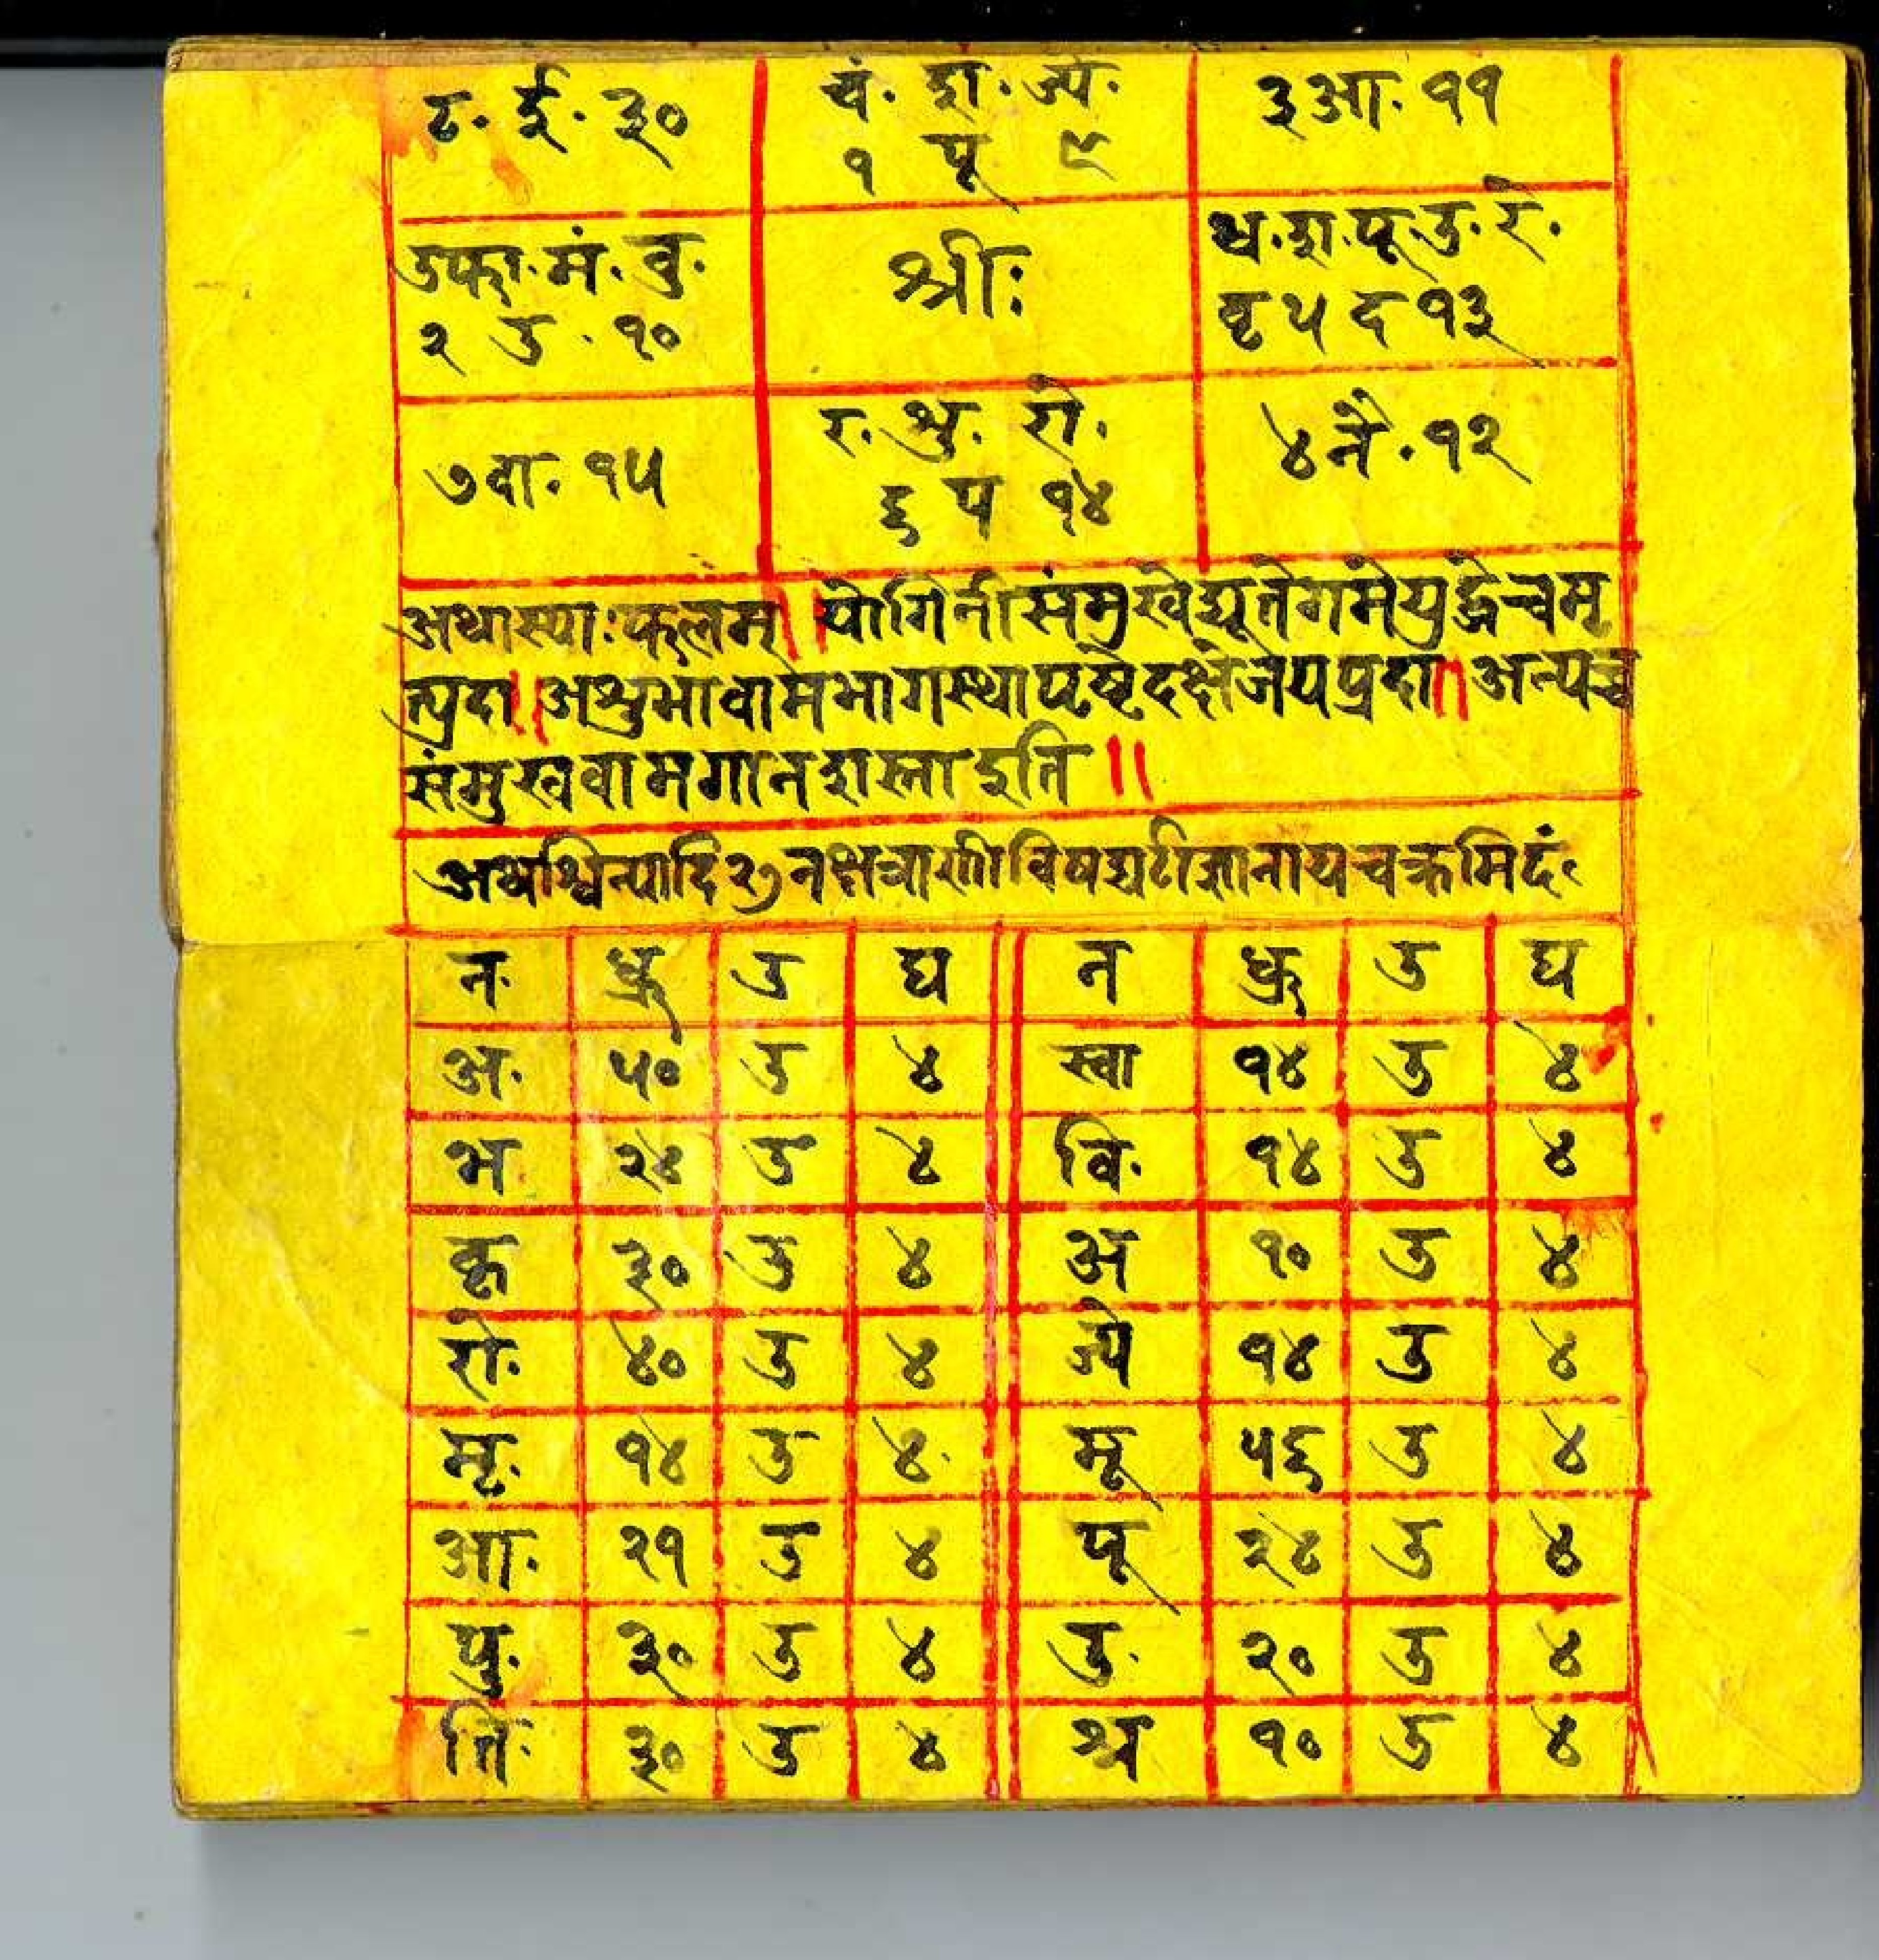 ८. ई. ३०
चं. श. ज्ये.
१ पू ९
३ आ. ११
उफा. मं. बु.
२ उ. १०
श्रीः
श्र. श. पू. उ. रे.
बृ ५ द १३
७ वा. १५
र. शु. रो.
६ प १४
४ नै. १२
अथास्याः फलम् ॥ योगिनीसंमुखेद्यूतेगमेयुद्धेचमृ
त्युदा ॥ अशुभावामभागस्थापृष्ठेदक्षेजयप्रदा ॥ अन्यच्च
संमुखवामगानशस्ताइति ॥
अथश्विन्यादि२७नक्षत्राणांविषघटीज्ञानायचक्रमिदं
न. ध्रु उ घ न ध्रु उ घ
अ. ५० उ ४ स्वा १४ उ ४
भ २४ उ ४ वि. १४ उ ४
कृ ३० उ ४ अ १० उ ४
रो. ४० उ ४ ज्ये १४ उ ४
मृ. १४ उ ४ मू ५६ उ ४
आ. २१ उ ४ पू २४ उ ४
पु. ३० उ ४ उ. २० उ ४
ति. ३० उ ४ श्र १० उ ४